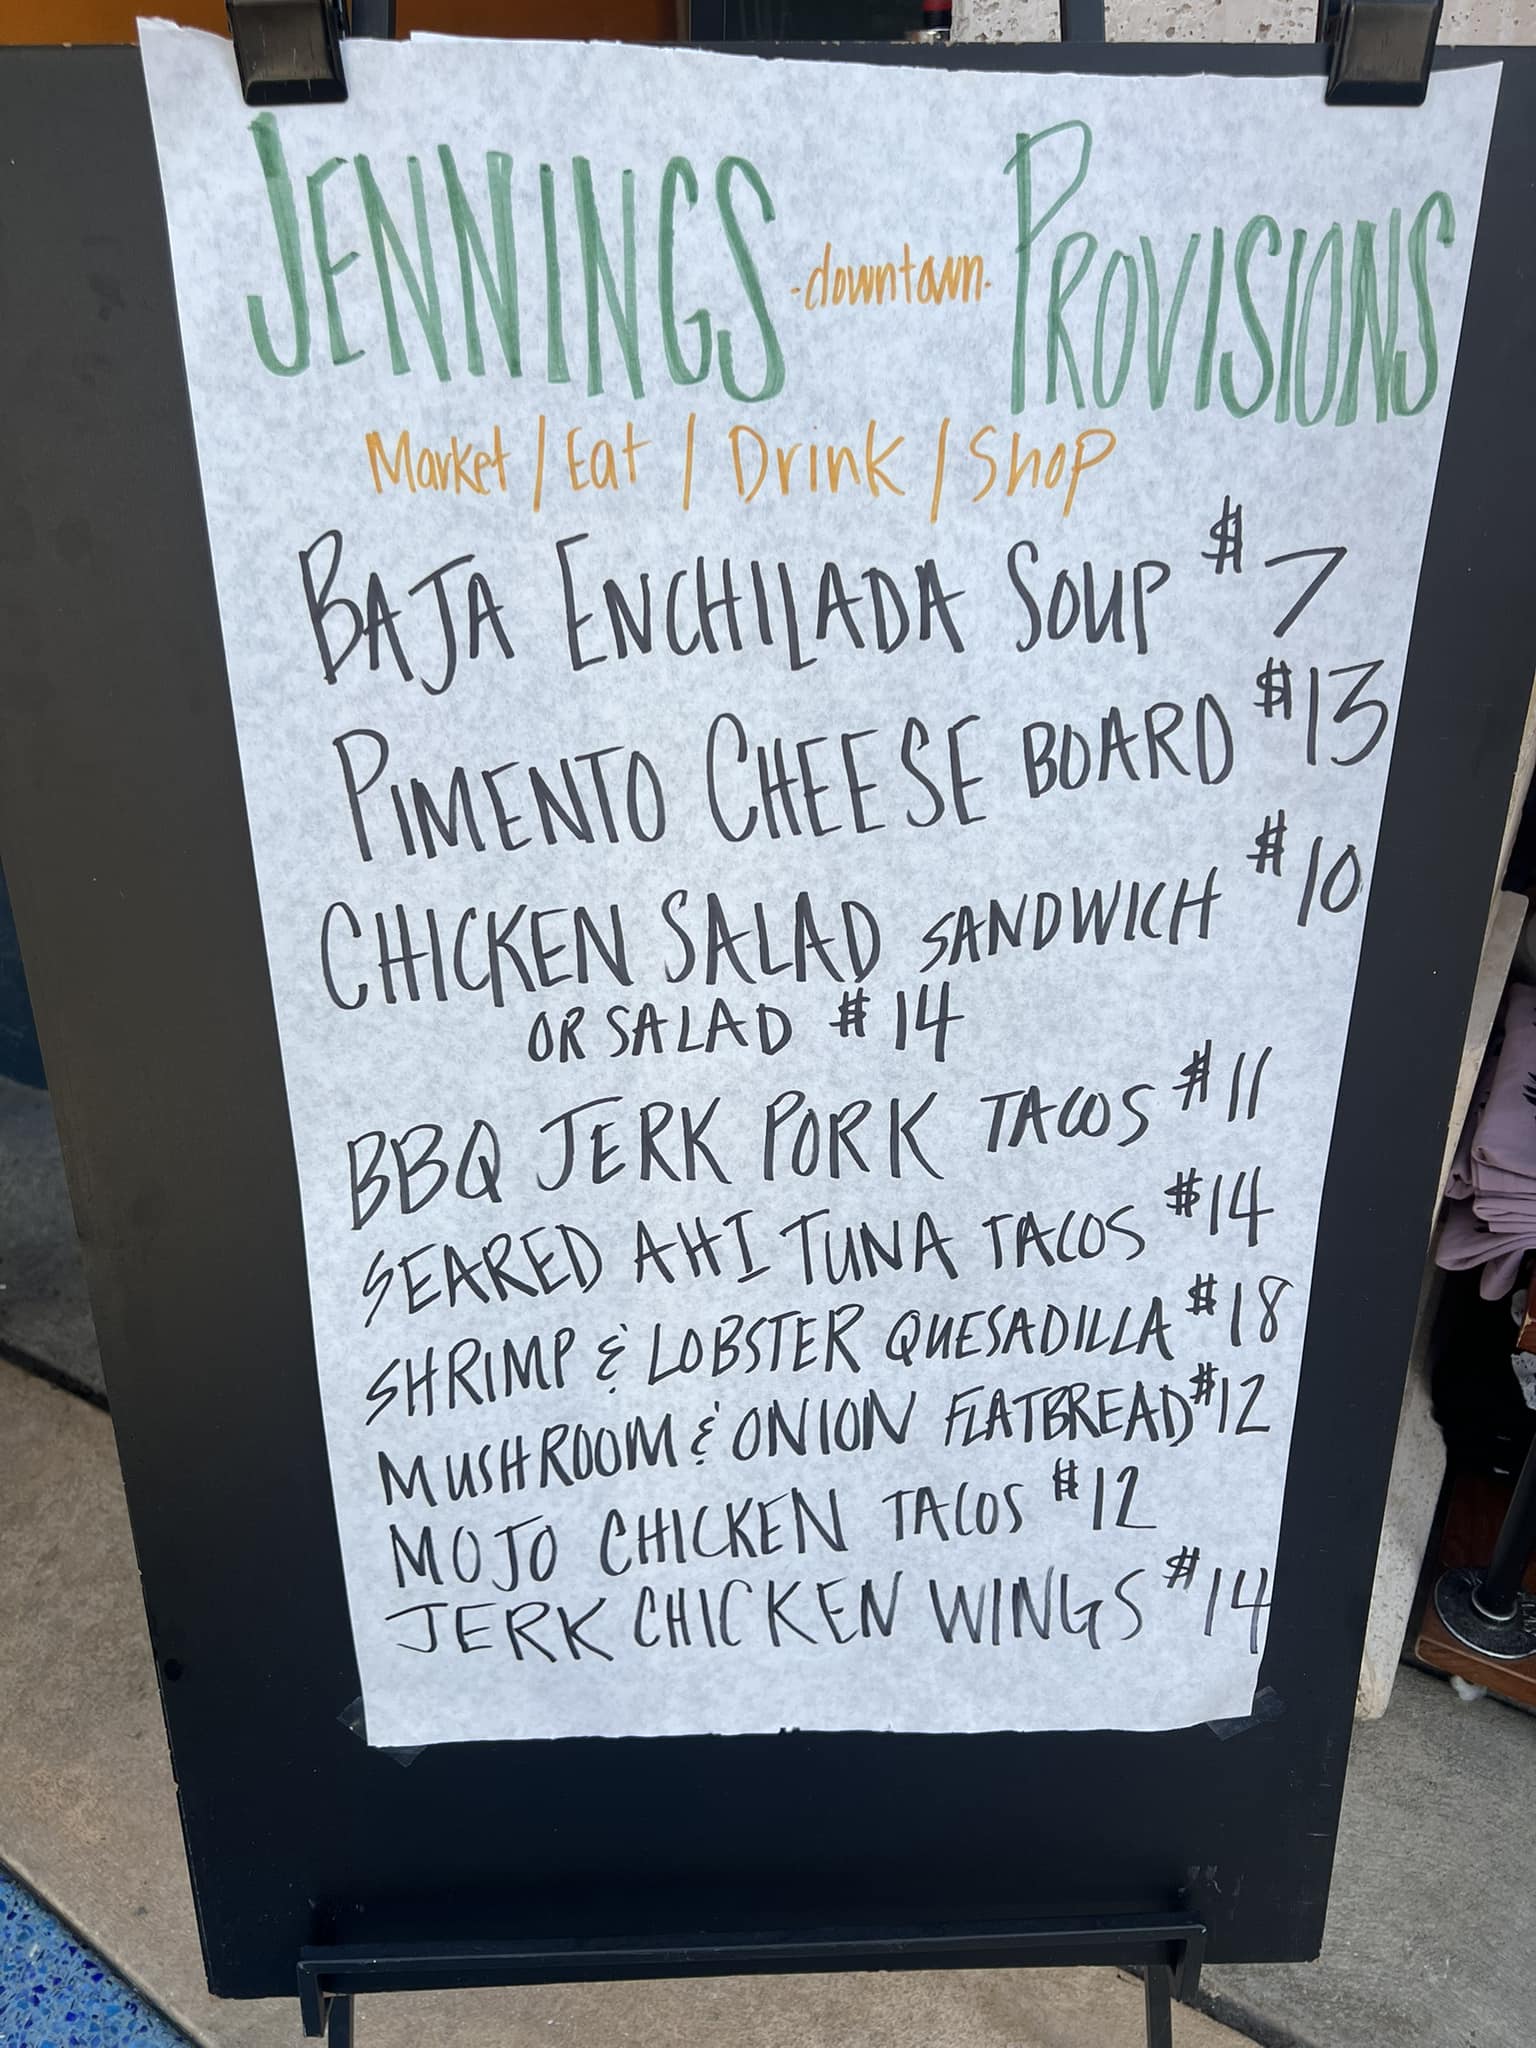 JENNINGS -downtown- PROVISIONS
Market / Eat / Drink / Shop
BAJA ENCHILADA SOUP $7
PIMENTO CHEESE BOARD $13
CHICKEN SALAD SANDWICH $10
OR SALAD $14
BBQ JERK PORK TACOS $11
SEARED AHI TUNA TACOS $14
SHRIMP & LOBSTER QUESADILLA $18
MUSHROOM & ONION FLATBREAD $12
MOJO CHICKEN TACOS $12
JERK CHICKEN WINGS $14